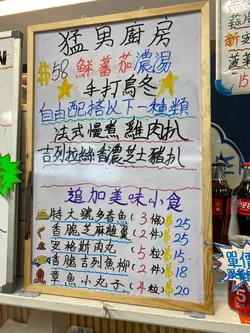 猛男廚房
$58 鮮蕃茄濃湯
手打烏冬
自由配搭以下一種類
法式慢煮雞肉扒
吉列拉絲香濃芝士豬扒
追加美味小食
特大號多春魚(3條) $25
香脆芝麻雞翼(2件) $25
安格斯肉丸(5粒) $15
香脆吉列魚柳(2件) $18
章魚小丸子(4粒) $20
單價